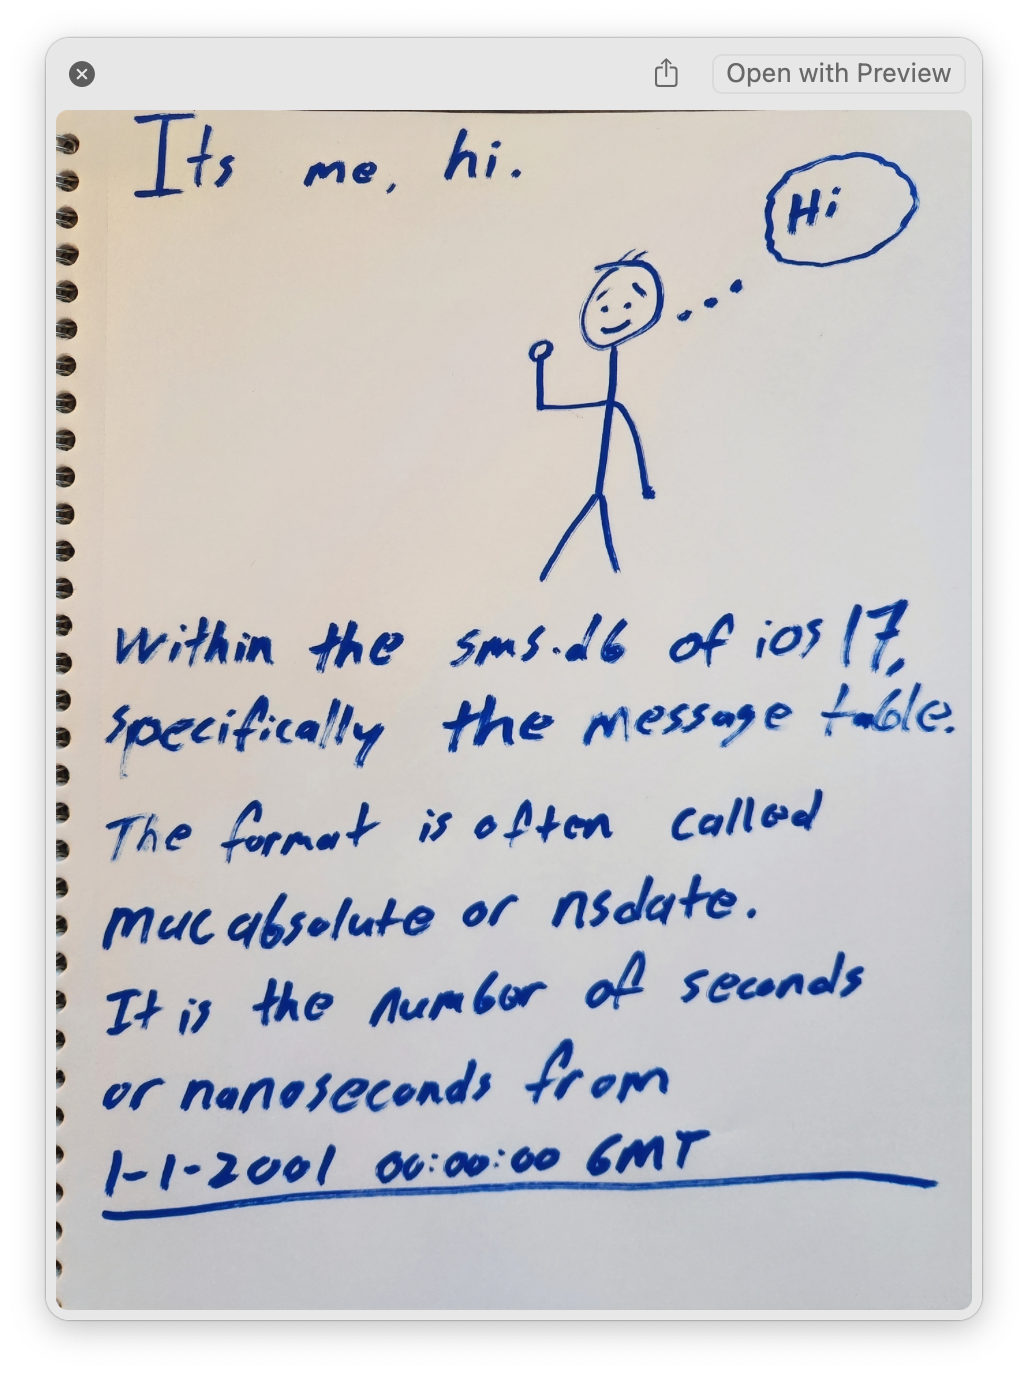 Open with Preview
Its me, hi.
Hi
Within the sms.db of ios 17,
specifically the message table.
The format is often called
mac absolute or nsdate.
It is the number of seconds
or nanoseconds from
1-1-2001 00:00:00 GMT